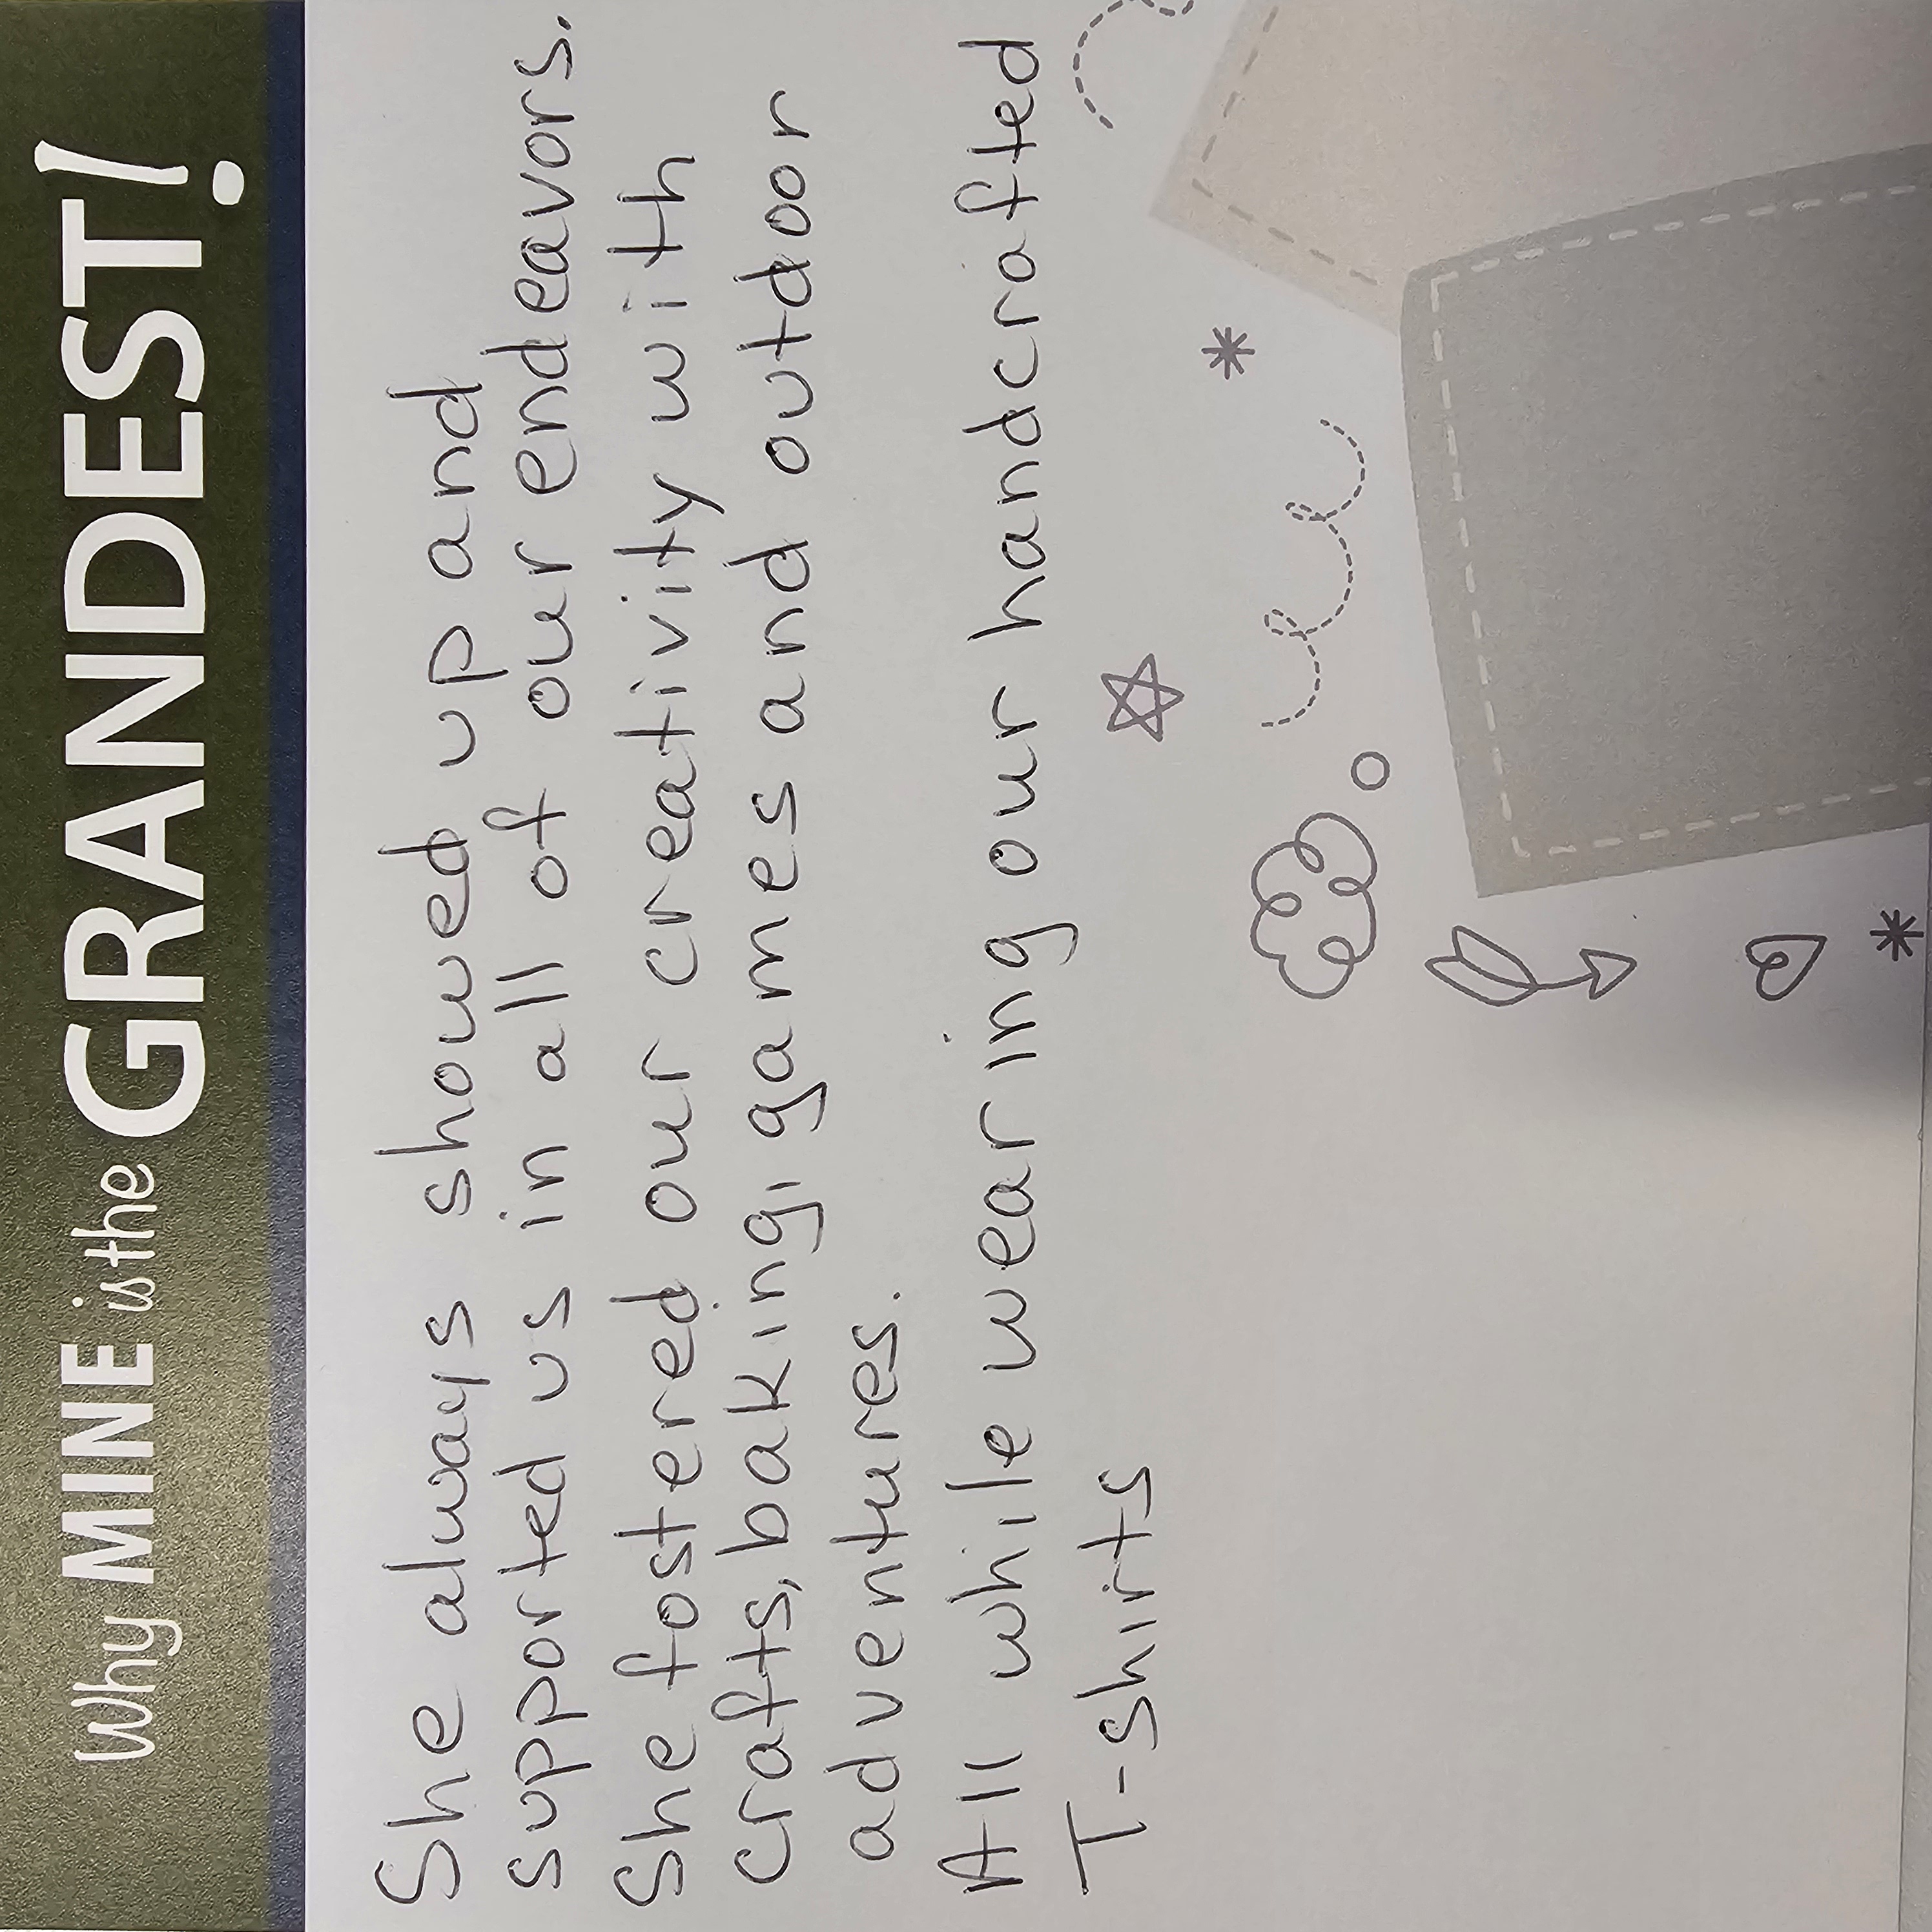 Why MINE is the GRANDEST!
She always showed up and
supported us in all of our endeavors.
She fostered our creativity with
crafts, baking, games and outdoor
adventures.
All while wearing our handcrafted
T-shirts